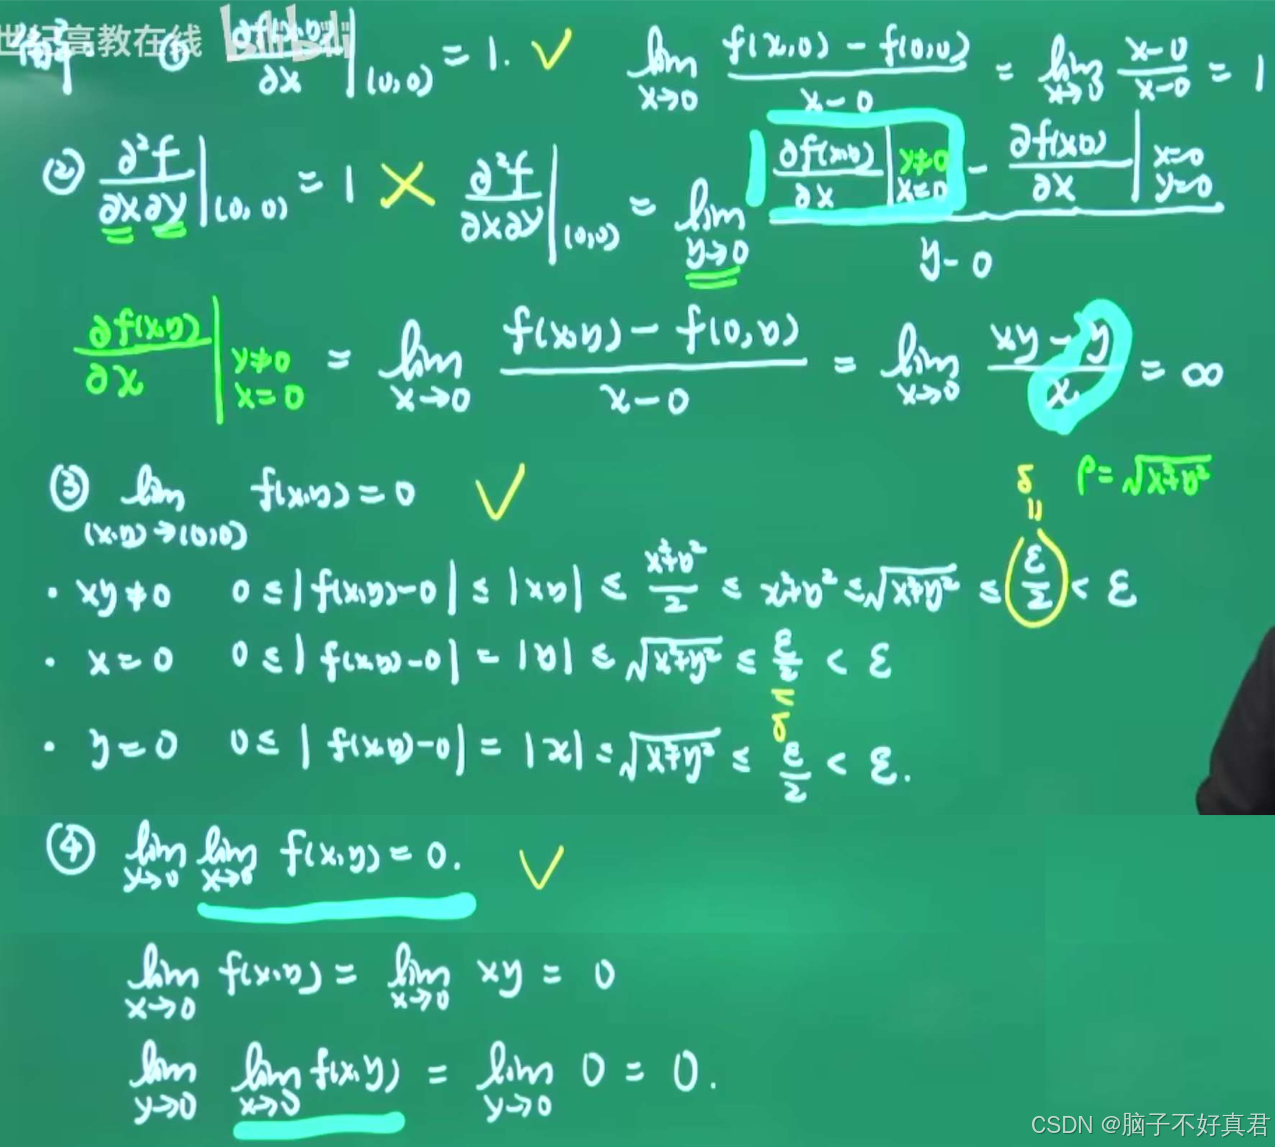 世纪高教在线 bilibili
① ∂f(x,y)/∂x |(0,0) = 1. ✓ lim x→0 f(x,0) − f(0,0) / x−0 = lim x→0 x−0 / x−0 = 1
② ∂²f/∂x∂y |(0,0) = 1 × ∂²f/∂x∂y |(0,0) = lim y→0 ∂f(x,y)/∂x | y≠0 x=0 − ∂f(x,y)/∂x | x=0 y=0 / y−0
∂f(x,y)/∂x | y≠0 x=0 = lim x→0 f(x,y) − f(0,y) / x−0 = lim x→0 xy − y / x = ∞
③ lim (x,y)→(0,0) f(x,y) = 0 ✓ δ = ρ = √x²+y²
· xy≠0 0 ≤ | f(x,y)−0 | ≤ |xy| ≤ x²+y² / 2 ≤ x²+y² ≤ √x²+y² ≤ ε/2 < ε
· x=0 0 ≤ | f(x,y)−0 | = |y| ≤ √x²+y² ≤ ε/2 < ε
= δ
· y=0 0 ≤ | f(x,y)−0 | = |x| ≤ √x²+y² ≤ ε/2 < ε.
④ lim y→0 lim x→0 f(x,y) = 0. ✓
lim x→0 f(x,y) = lim x→0 xy = 0
lim y→0 lim x→0 f(x,y) = lim y→0 0 = 0.
CSDN @脑子不好真君